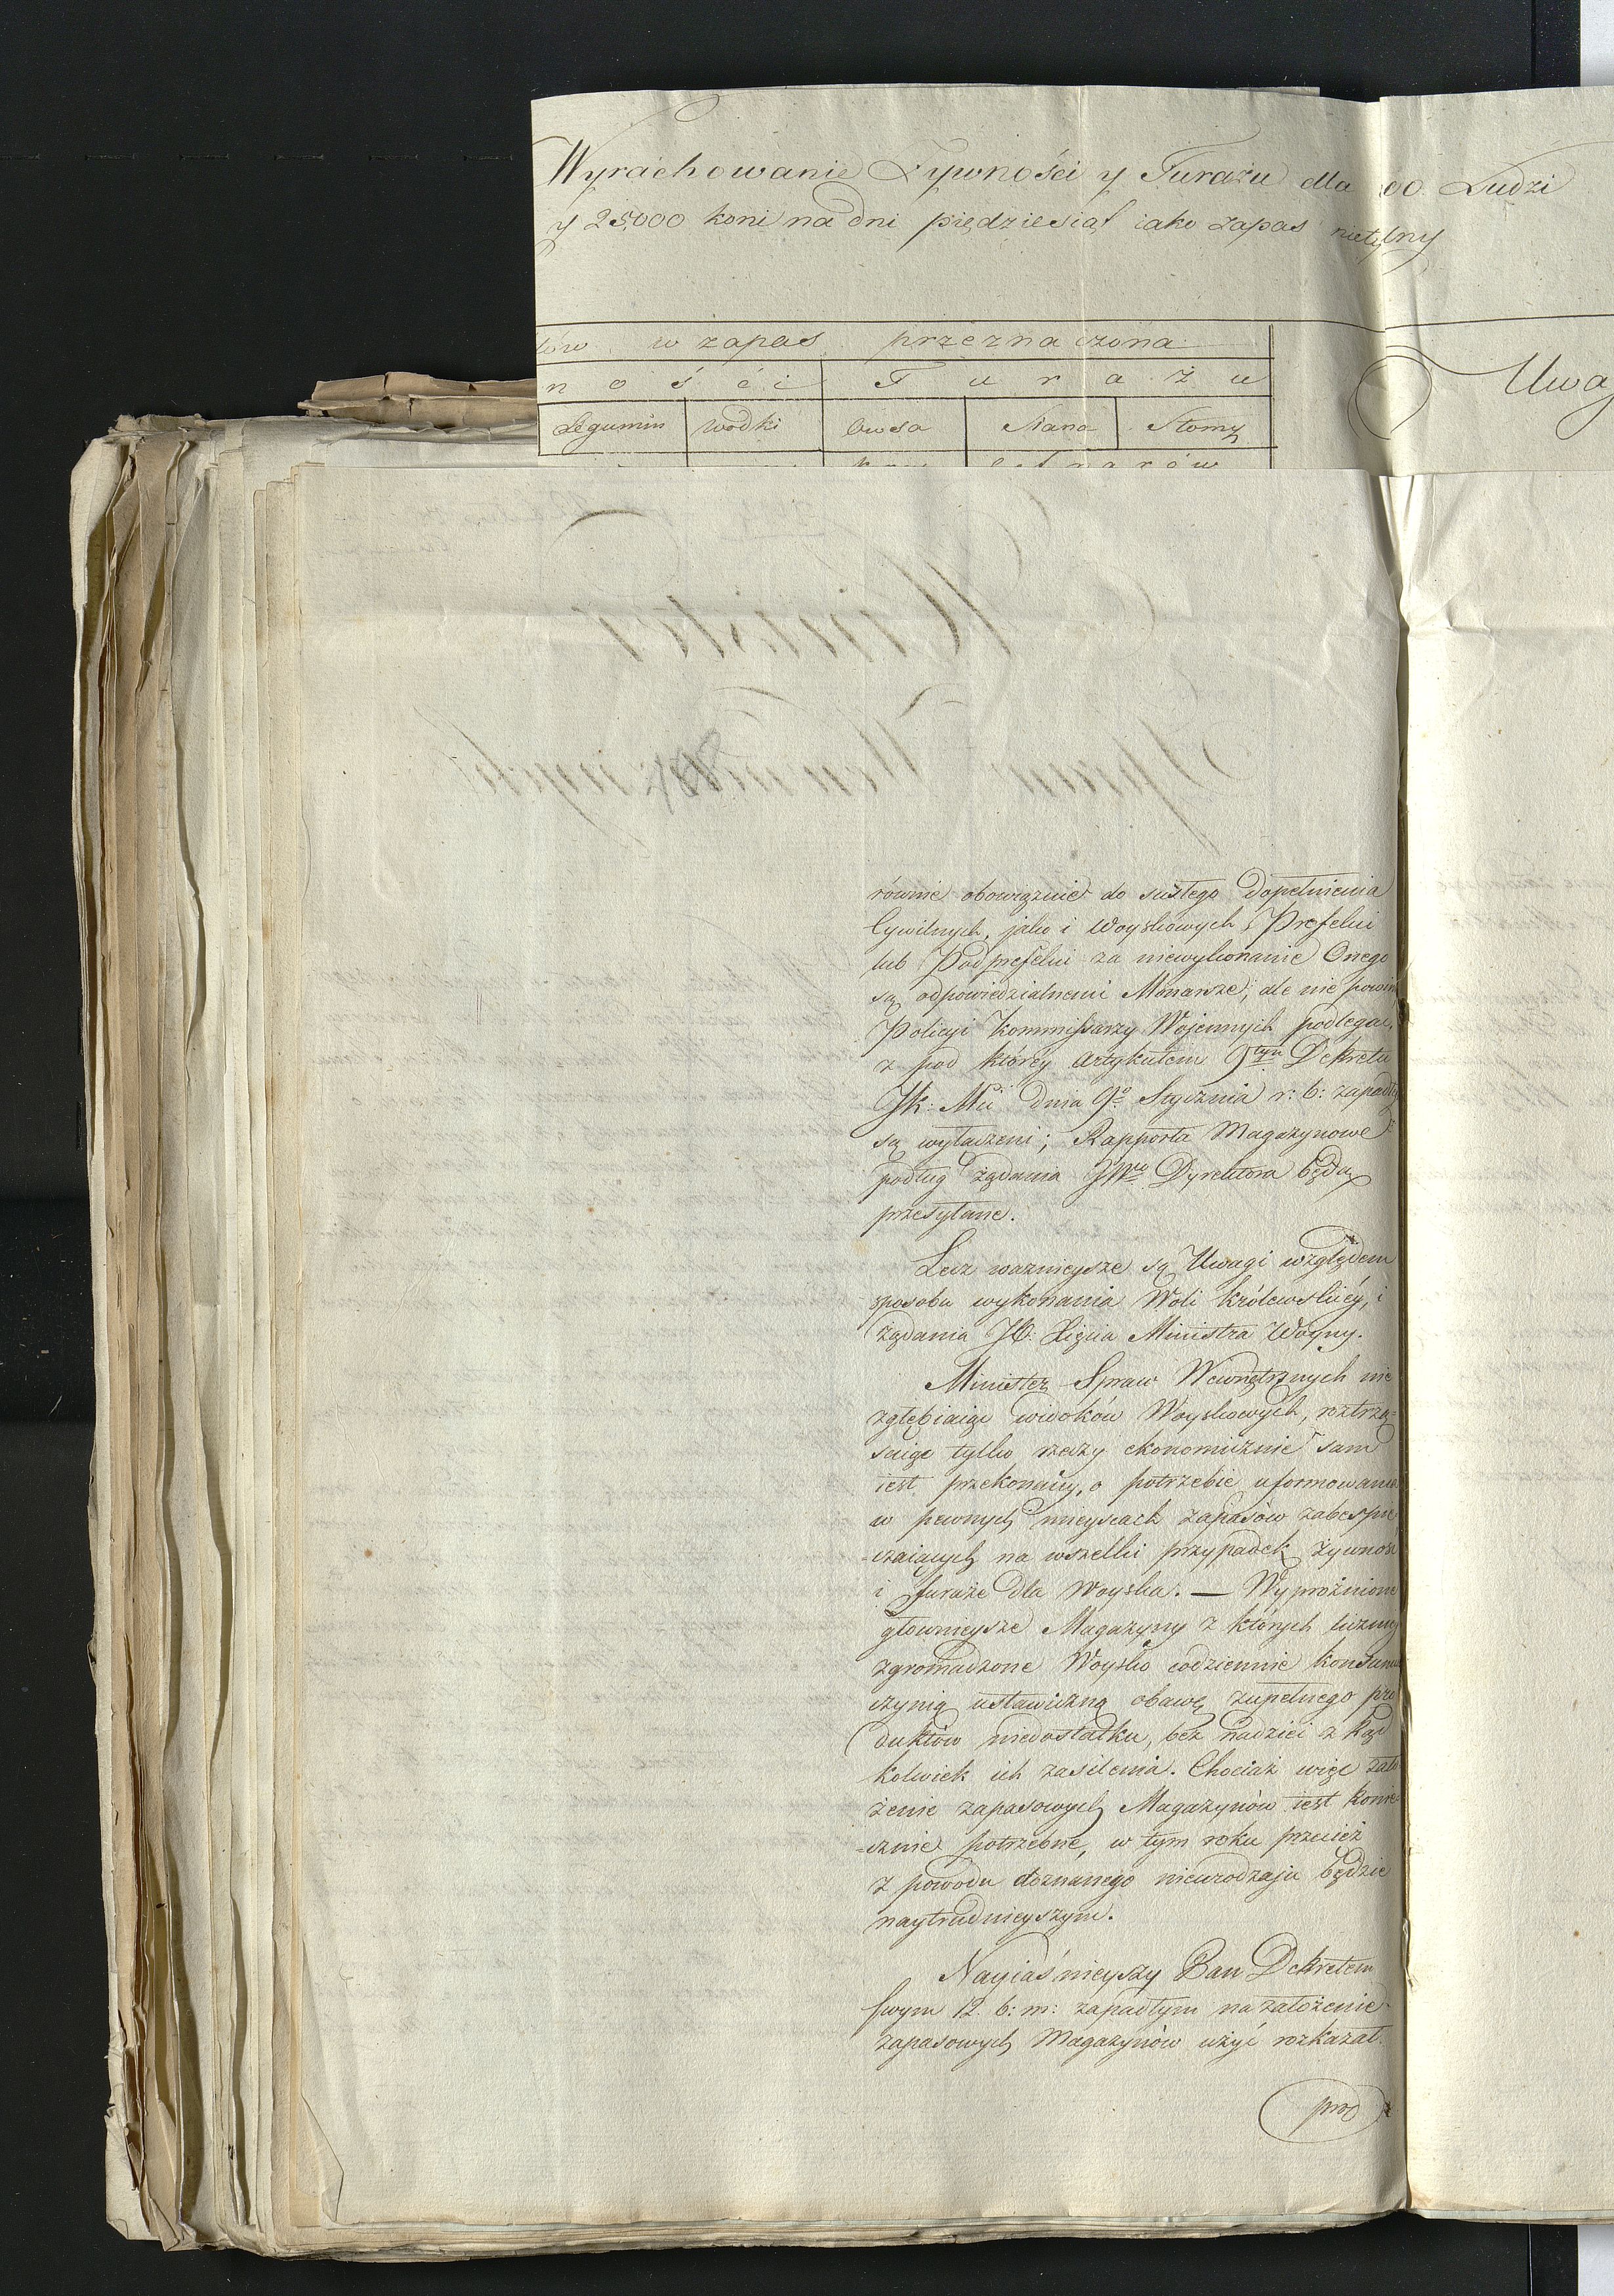 Wyrachowanie Żywności y Furażu dla 00 Ludzi
y 25,000 koni na dni pięćdziesiąt iako zapas nietylny
w zapas przeznaczona
n o ś ci F u r a ż u
Legumin Wodki Owsa Siana Słomy
Uwa
równie obowiąznie do susłego dopełnienia
Cywilnych, jako i Woyskowych; Prefekci
lub Podprefekci za niewykonanie Onego
są odpowiedzialnemi Monarsze; ale nie powin
Policyi Kommissarzy Wojennych podlegać,
z pod którey Artykułem 9tym Dekretu
JK: Mci dnia 9o Stycznia r: b: zapadły
są wyłączeni; Rapporta Magazynowe
podług żądania JWo Dyrektora będą
przesyłane.
Lecz ważnieysze są Uwagi względem
sposobu wykonania Woli Królewskiéy, i
żądania JO: Xięcia Ministra Woyny.
Minister Spraw Wewnętrznych nie
zgłębiaiąc widoków Woyskowych, roztrzą=
saiąc tylko rzeczy ekonomicznie sam
iest przekonany, o potrzebie uformowania
w pewnych mieyscach zapasów zabespie
=czaiących na wszelki przypadek żywność
i furaże dla Woyska. — Wypróżnione
głównieysze Magazyny z których liczny
zgromadzone Woysko codziennie konsumu
czynią ustawiczną obawę zupełnego pro
duktów niedostatku, bez nadziei z kąd
kolwiek ich zasilenia. Chociaż więc zało
żenie zapasowych Magazynów iest konie=
=cznie potrzebne, w tym roku przecież
z powodu doznanego nieurodzaju będzie
naytrudnieyszym.
Nayiaśnieyszy Pan Dekretem
swym 12. b: m: zapadłym na założenie
zapasowych Magazynów użyć rozkazał
prod